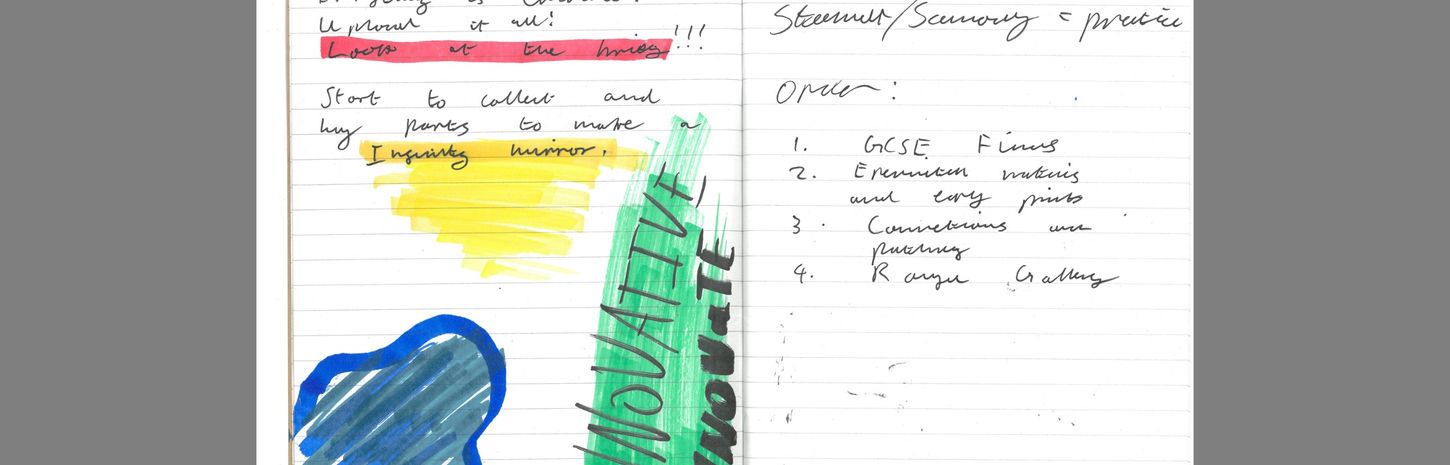 Upload it all!
Look at the !!!
Start to collect and
buy parts to make a
Infinity mirror.
INNOVATIVE
INNOVATE
Statement/Summary = practice
Order:
1. GCSE Films
2. making
and early prints
3. Connections and
patching
4. Gallery